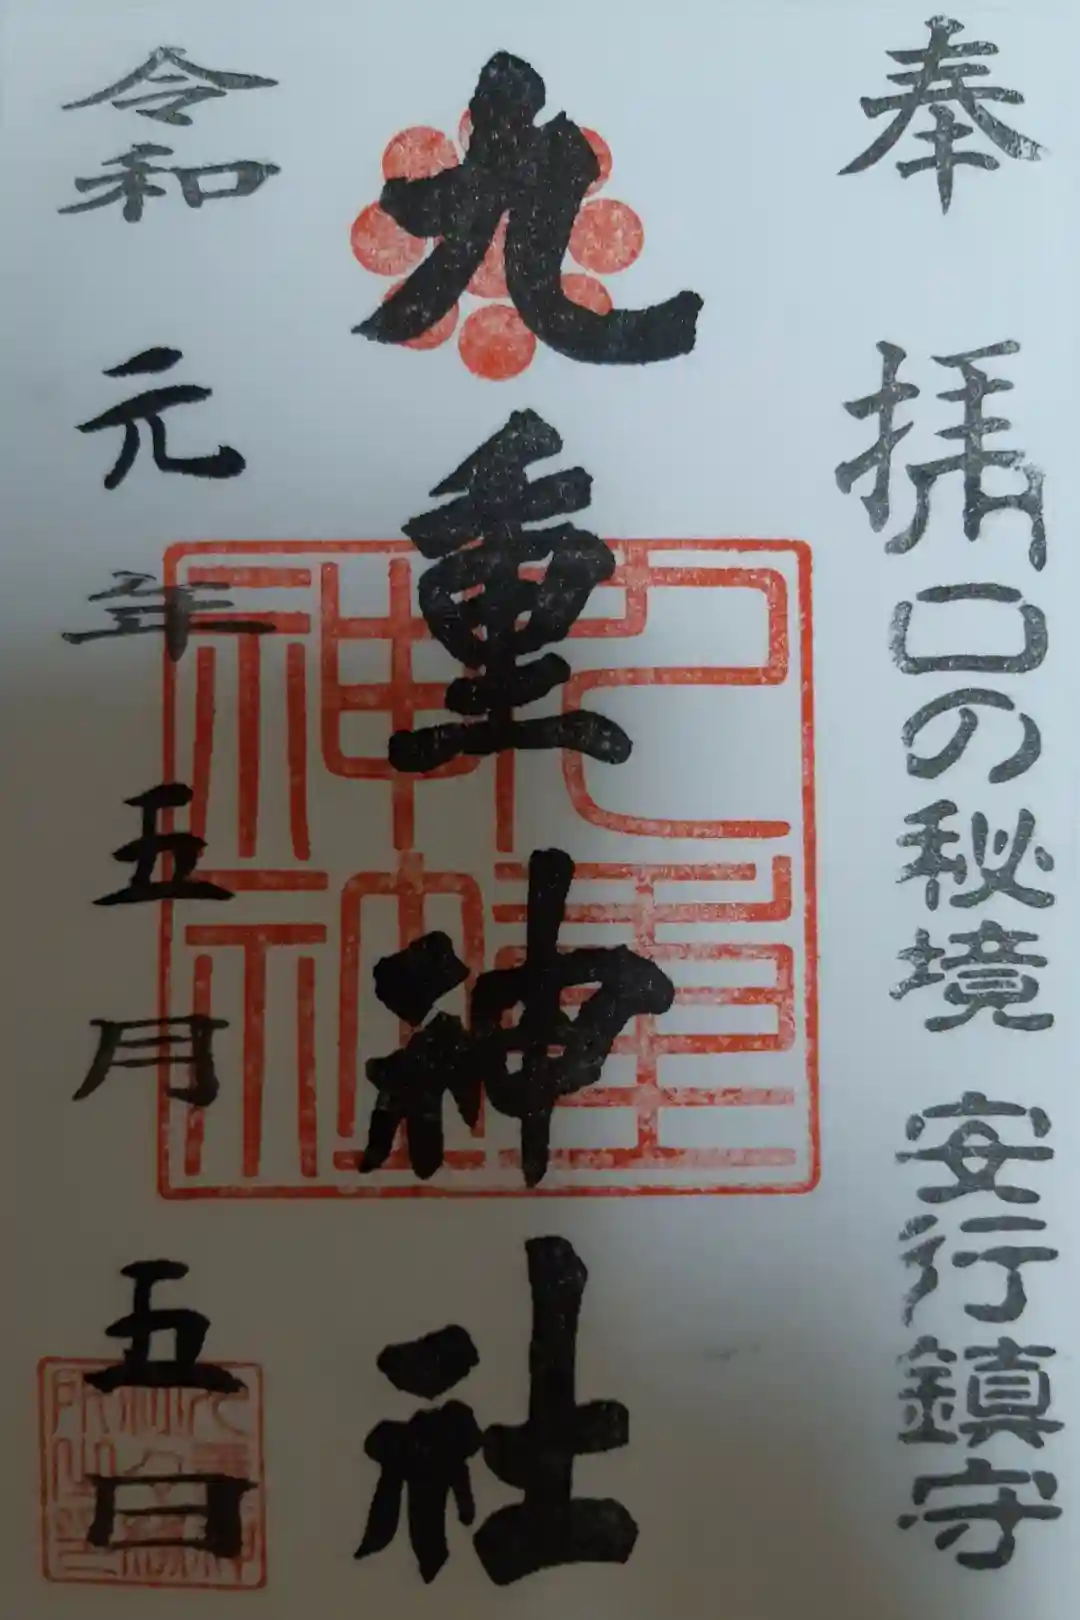 奉拝
口の秘境 安行鎮守
九重神社
令和元年五月五日
九重神社